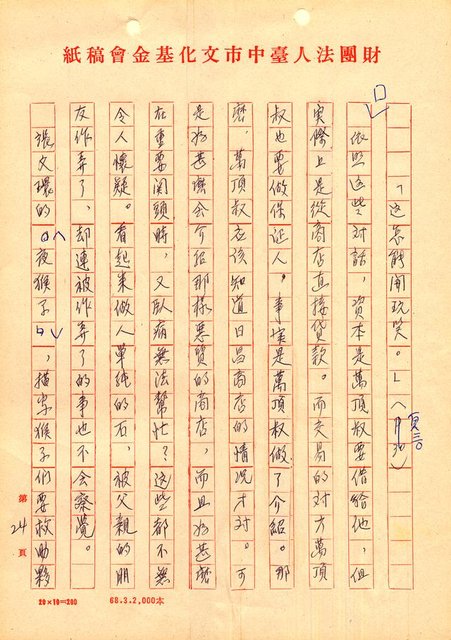 財團法人臺中市文化基金會稿紙
「這怎能開玩笑。」（頁三〇）
依照這些對話，資本是萬頂叔要借給他，但
實際上是從商店直接貸款。而交易的對方萬頂
叔也要做保証人。事業是萬頂叔做了介紹。那
麼，萬頂叔应該知道日昌商店的情況才对。可
是為甚麼会介紹那樣惡質的商店，而且為甚麼
在重要関頭時，又臥病無法幫忙？這些都不無
令人懷疑。看起来做人單純的石，被父親的朋
友作弄了，却連被作弄了的事也不会察覺。
張文環的《夜猴子》，描寫猴子们要救助夥
第24頁
20×10=200
68.3.2,000本